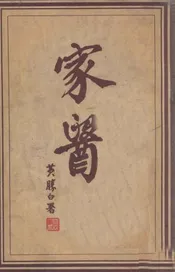 家醫
黃勝白署